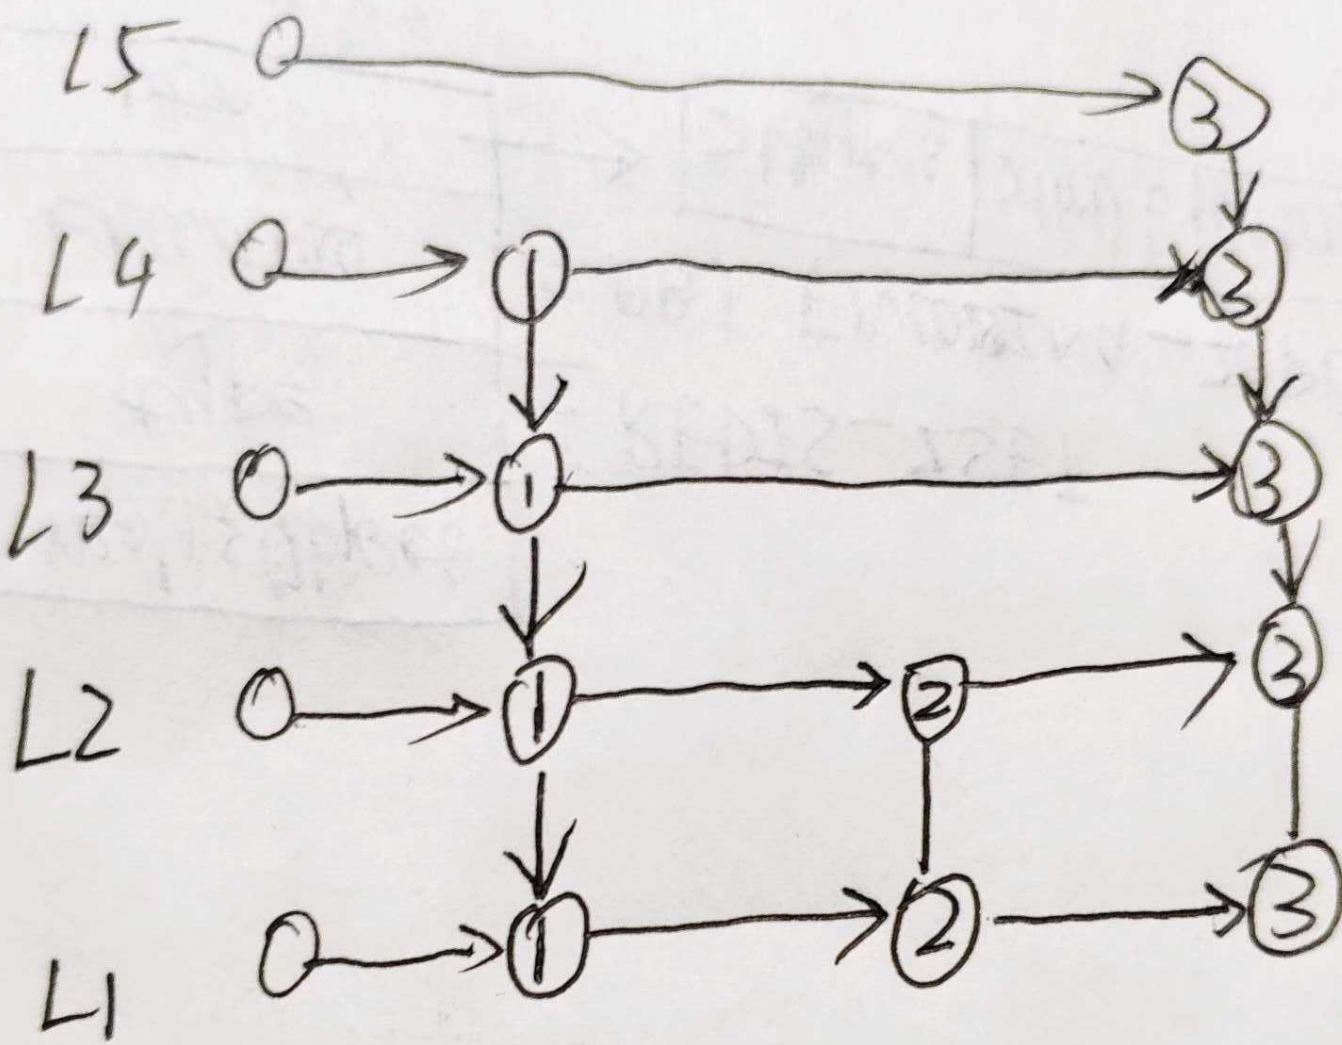 L5 3
L4 1 3
L3 1 3
L2 1 2 3
L1 1 2 3